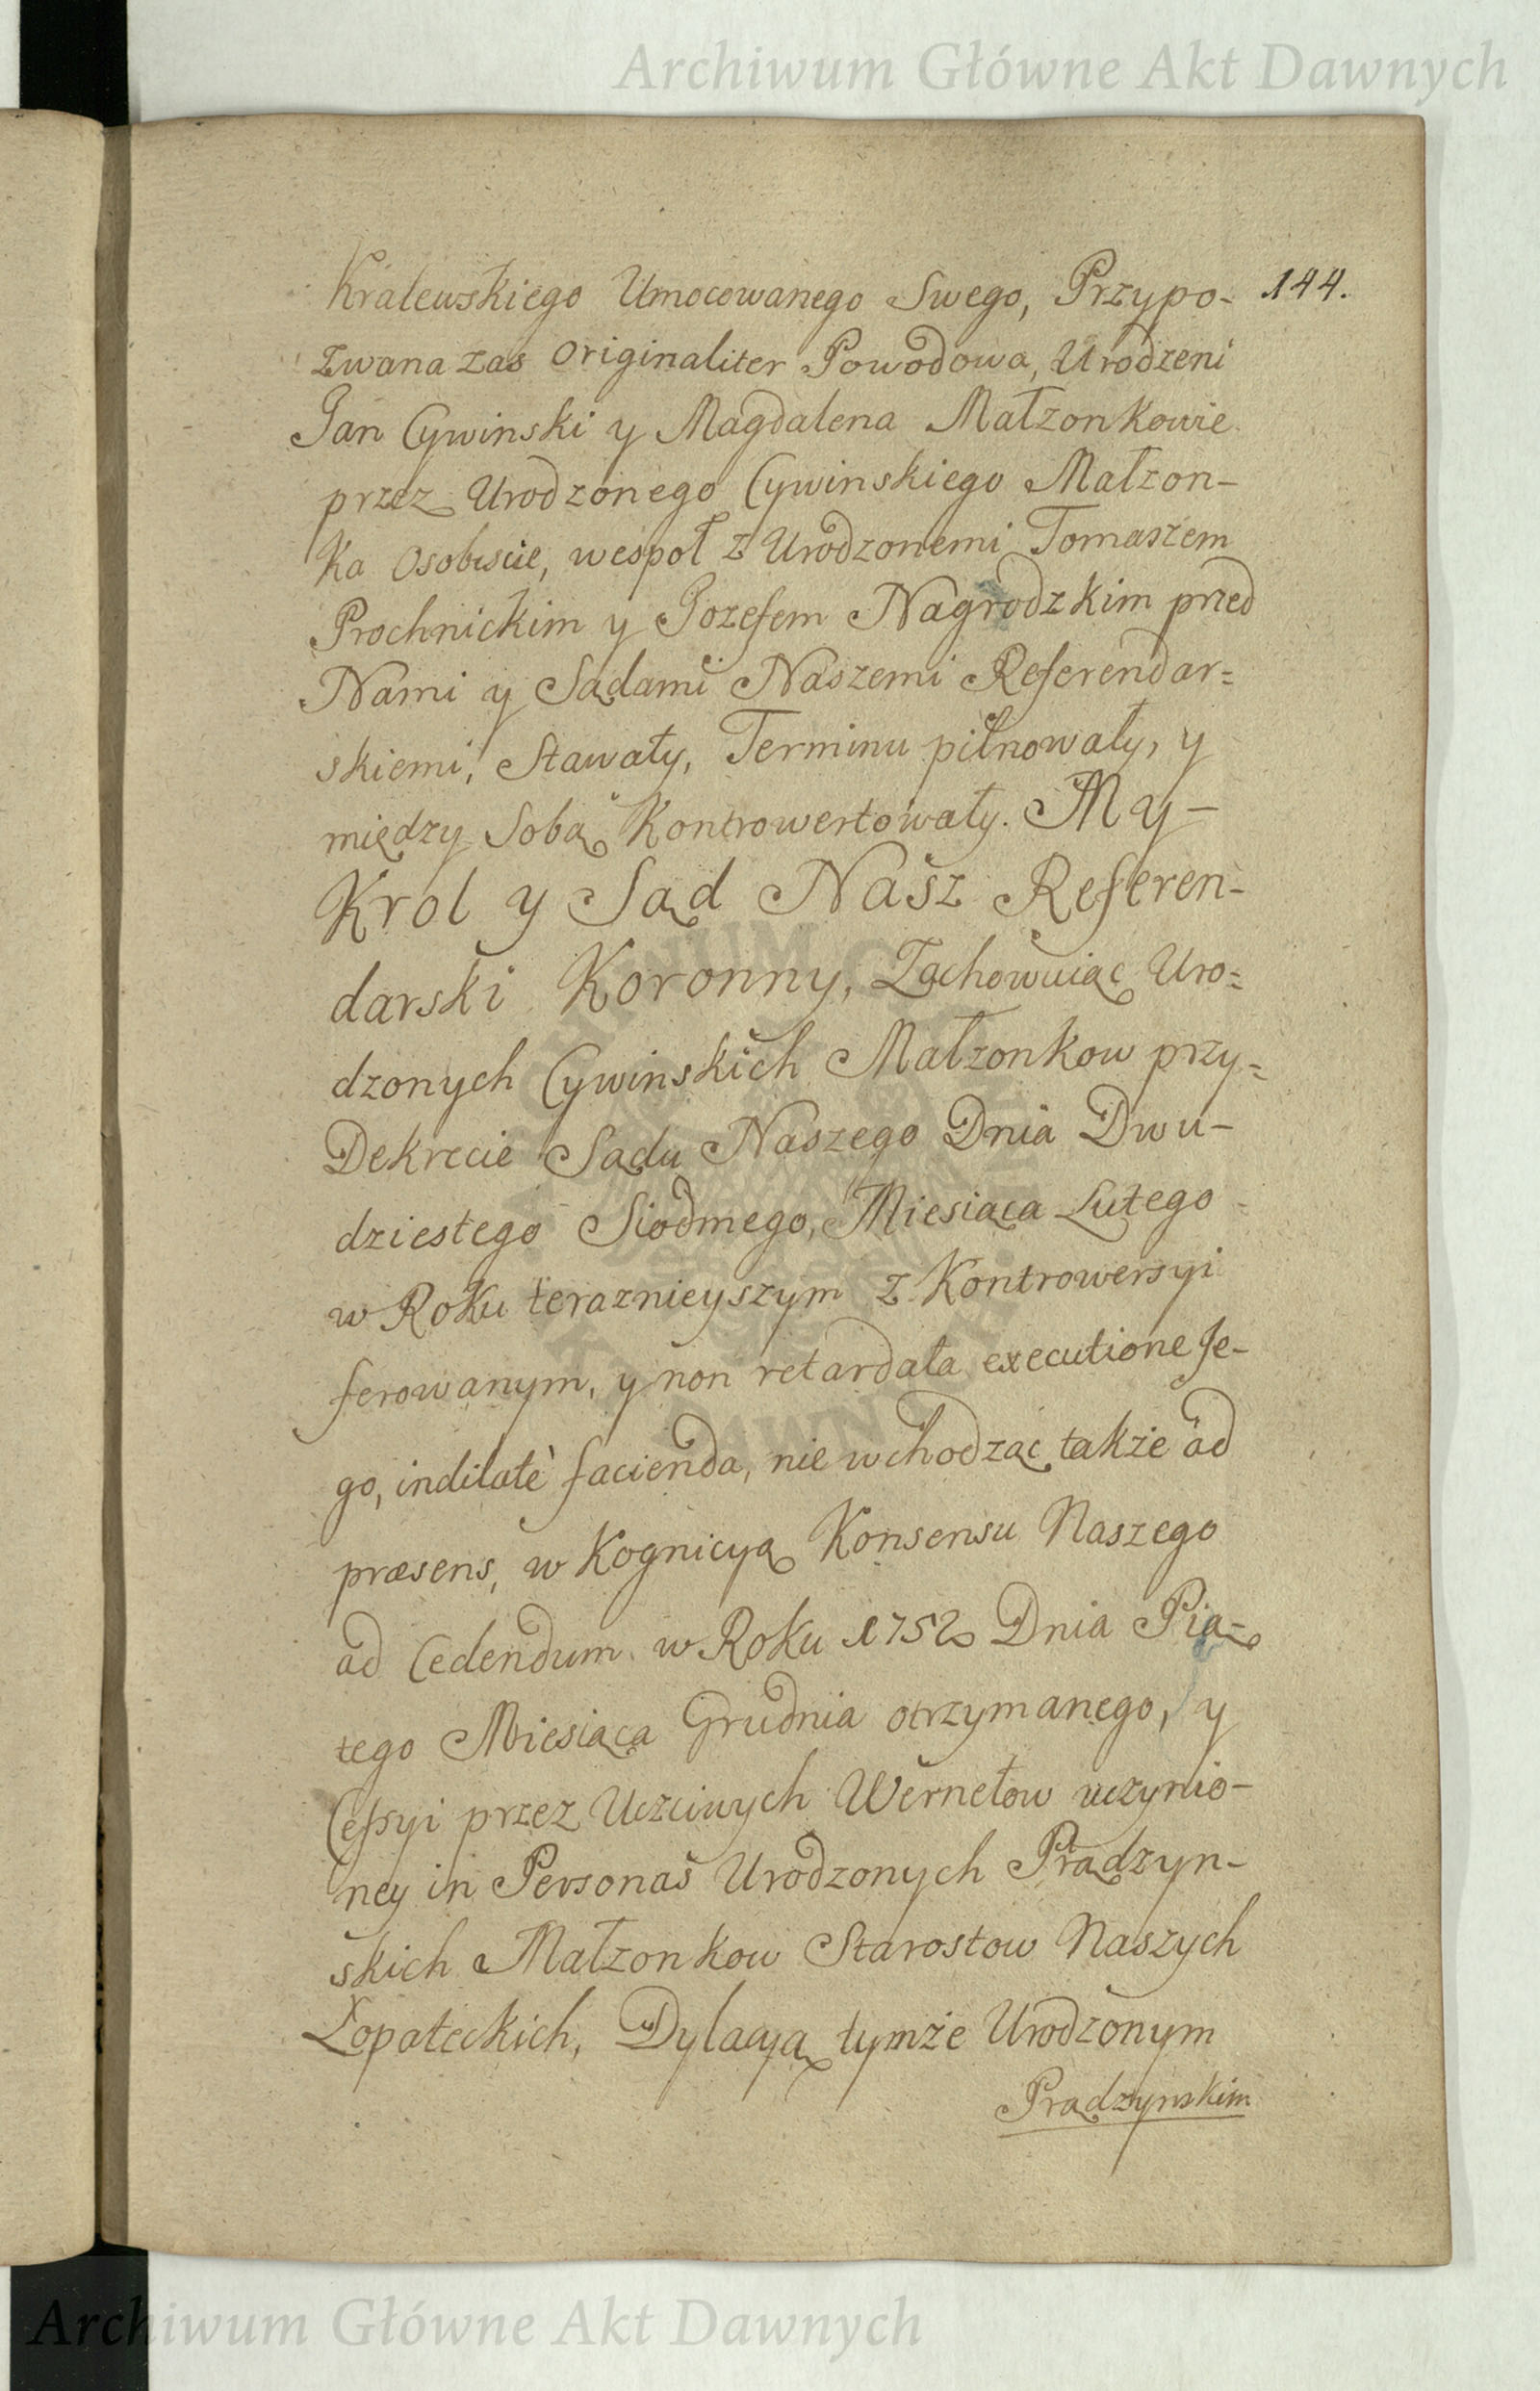 Archiwum Główne Akt Dawnych
Kralewskiego Umocowanego Swego, Przypo- 144.
zwana zas Originaliter Powodowa, Urodzeni
Jan Cywinski y Magdalena Małzonkowie
przez Urodzonego Cywinskiego Małzon-
ka Osobiscie, wespoł z Urodzonemi Tomaszem
Prochnickim y Jozefem Nagrodzkim przed
Nami y Sądami Naszemi Referendar=
skiemi, Stawały, Terminu pilnowały, y
między Sobą Kontrowertowały. My-
Krol y Sąd Nasz Referen-
darski Koronny, Zachowuiąc Uro=
dzonych Cywinskich Małzonkow przy=
Dekrecie Sądu Naszego Dnia Dwu-
dziestego Siodmego, Miesiąca Lutego
w Roku teraznieyszym z Kontrowersyi
ferowanym, y non retardata executione Je-
go, indilatè facienda, nie wchodząc także ad
præsens, w Kognicyą Konsensu Naszego
ad Cedendum w Roku 1752 Dnia Pią-
tego Miesiąca Grudnia otrzymanego, y
Cessyi przez Uczciwych Wernetow uczynio-
ney in Personas Urodzonych Prądzyn-
skich Małzonkow Starostow Naszych
Łopateckich, Dylacyą tymże Urodzonym
Prądzynskim
Archiwum Główne Akt Dawnych